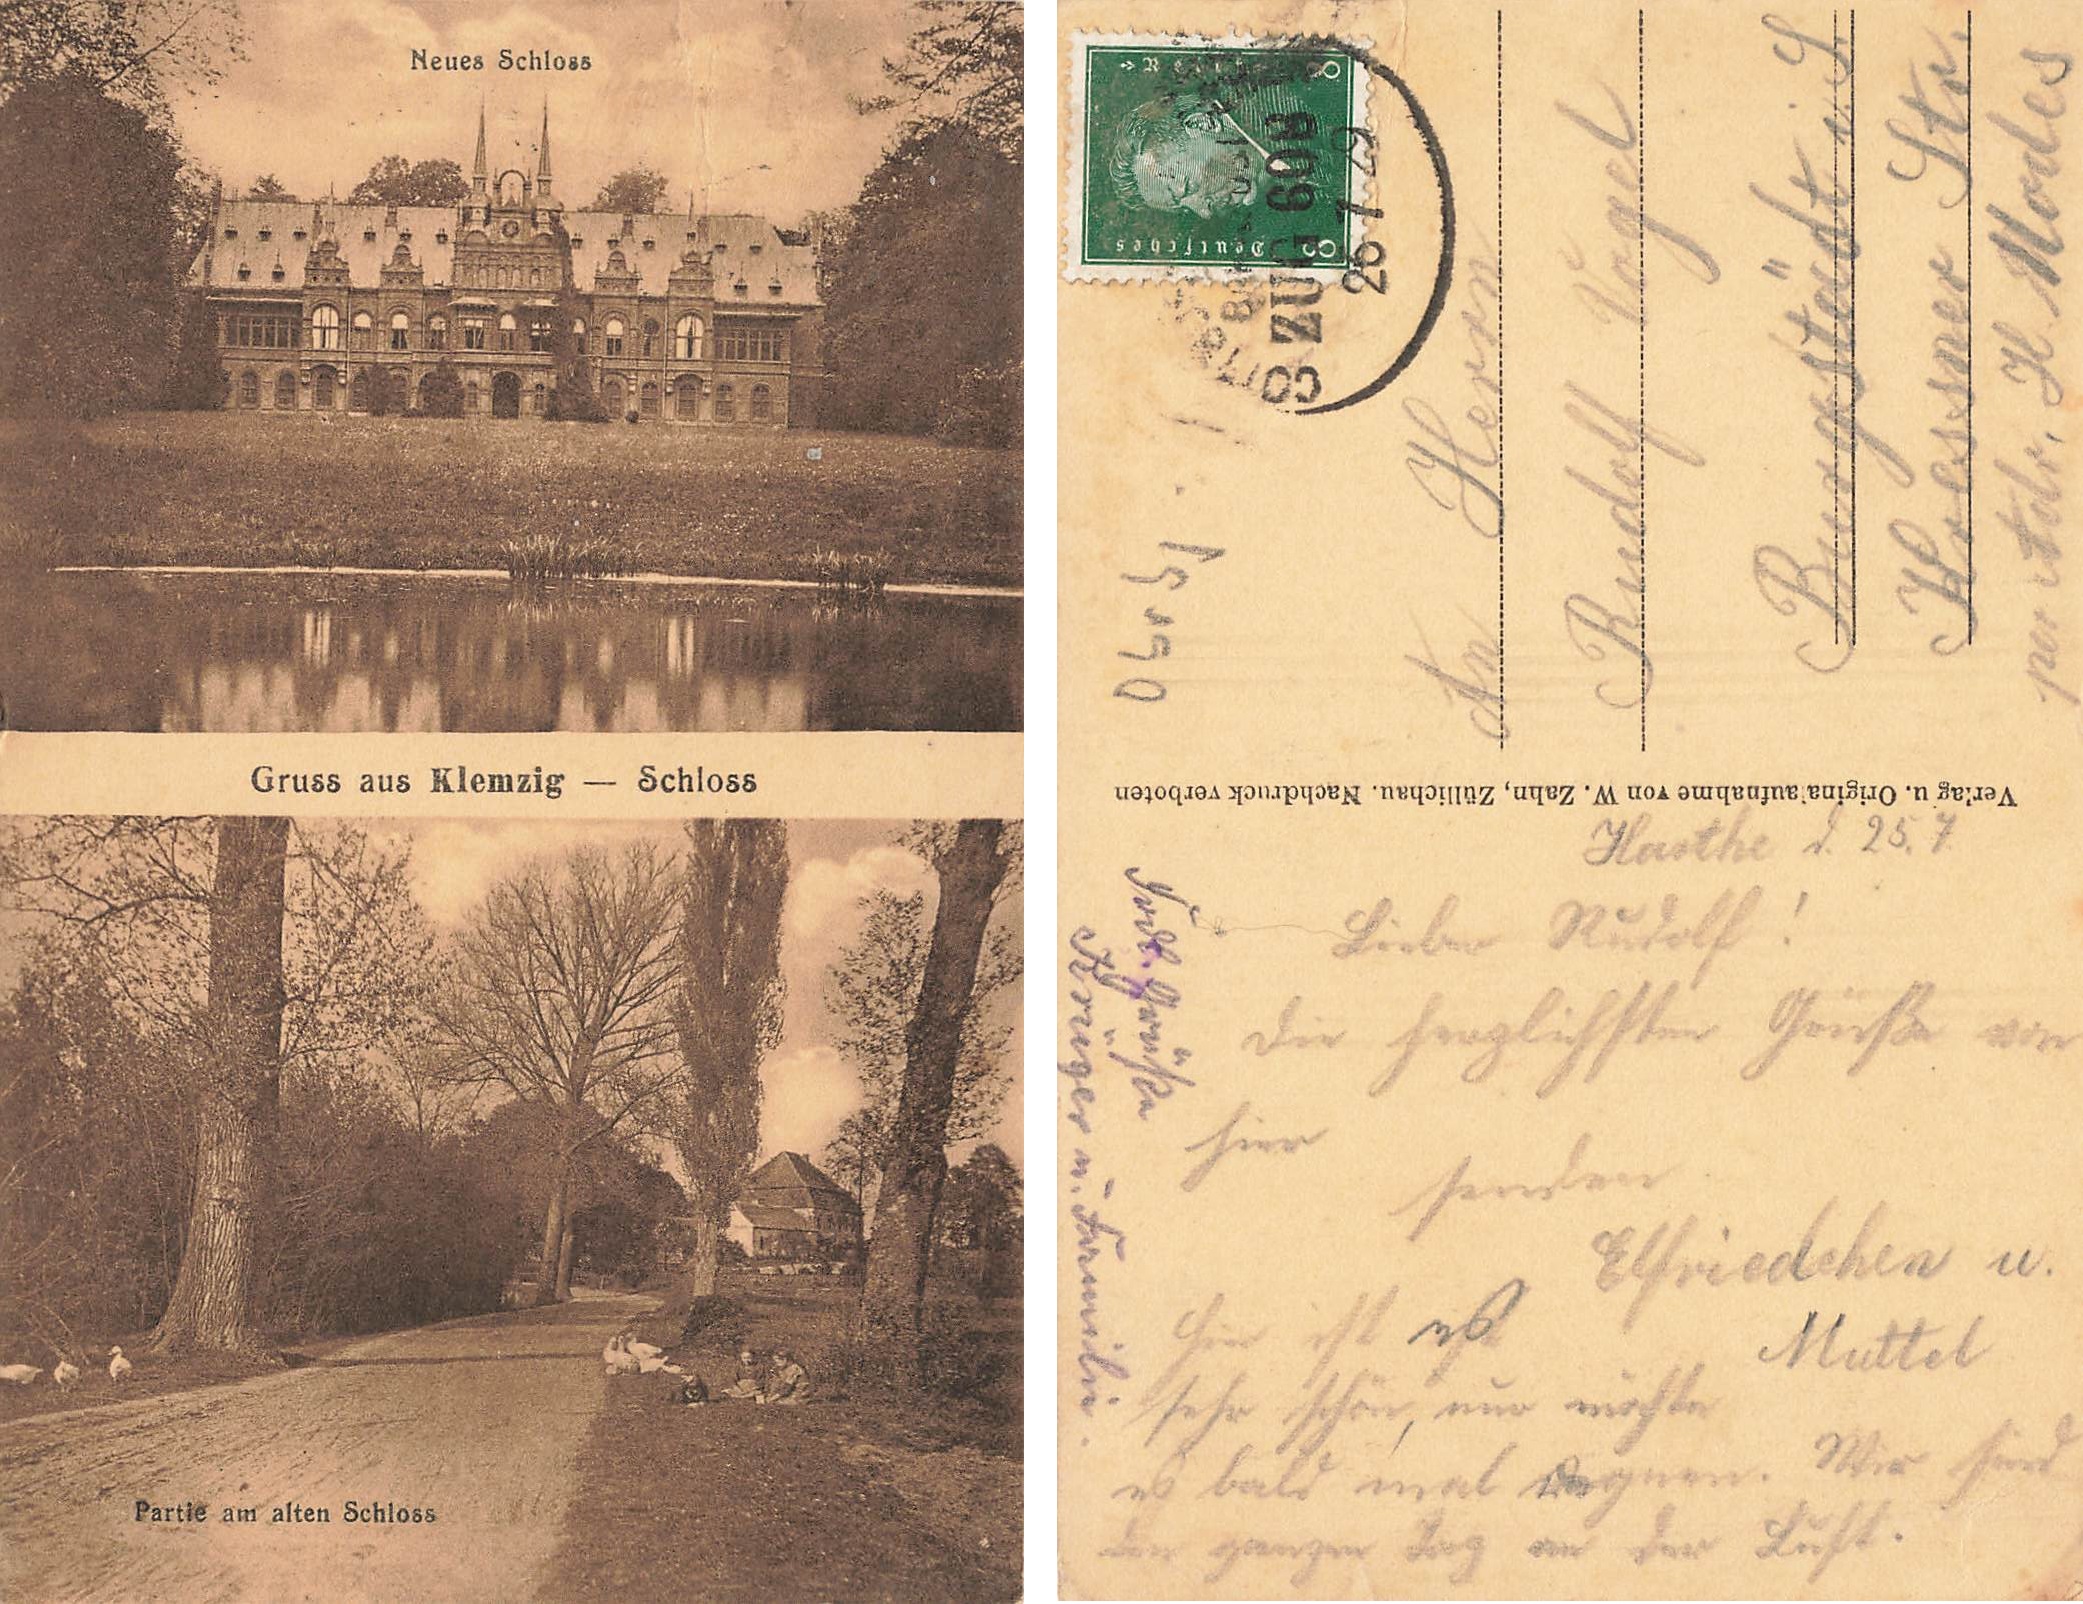 Neues Schloss
Gruss aus Klemzig — Schloss
Partie am alten Schloss
Deutsches Reich
8 8
ZUG 608
26 7 29
An Herrn
Rudolf Vogel
Burgstädt i. S.
Str.
H. Mordes
Verlag u. Originalaufnahme von W. Zahn, Züllichau. Nachdruck verboten
d. 25. 7
Lieber Rudolf!
Die herzlichsten Grüße von
hier
senden
Elfriedchen u.
Muttel
Hier ist es
sehr schön, nur möchte
es bald mal regnen. Wir sind
den ganzen Tag an der Luft.
Grüße
Krüger u. Familie.